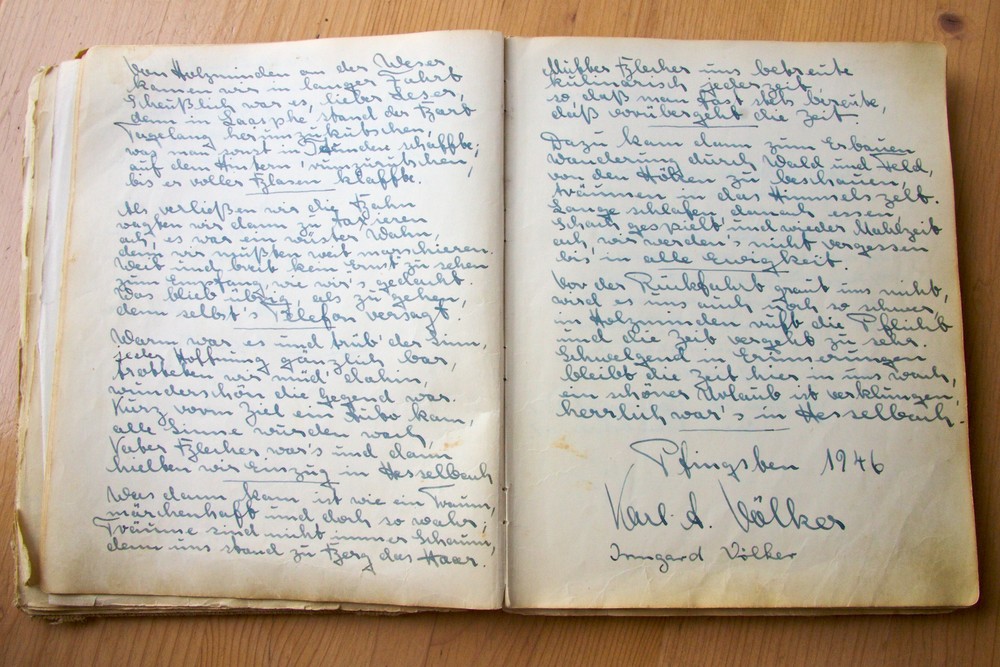 Von Holzminden an der Weser
kamen wir in langer Fahrt
Scheußlich war es, lieber Leser,
denn in Laasphe stand der Start
Tagelang herumzukutschen,
was man sonst in Stunden schaffte,
auf dem Hintern rumzurutschen,
bis er voller Blasen klaffte.
Als verließen wir die Bahn
wagten wir dann zu taxieren
ach, es war ein wüster Wahn,
denn wir mußten weit marschieren.
Weit und breit kein Ernst zu sehen
zum Empfang, wie wir's gedacht.
Was blieb übrig, als zu gehen,
denn selbst's Telefon versagt.
Warm war es und trüb' der Sinn,
jeder Hoffnung gänzlich bar,
trotteten wir müd' dahin,
wunderschön die Gegend war.
Kurz vorm Ziel ein Auto kam,
alle Sinne wurden wach,
Vater Blecher war's und dann
hielten wir Einzug in Hesselbach
Was dann kam ist wie ein Traum,
märchenhaft und doch so wahr;
Träume sind nicht immer Schaum,
denn uns stand zu Berg das Haar.
Mutter Blecher uns betreute
kulinarisch jederzeit
so daß man fast stets bereute,
daß vorübergeht die Zeit.
Dazu kam dann zum Erbauen
Wanderung durch Wald und Feld,
von den Höhen zu beschauen,
träumen in das Himmelszelt.
Lange schlafen, danach essen,
Skat gespielt und wieder Mahlzeit
ach, wir werden's nicht vergessen
bis in alle Ewigkeit.
Vor der Rückfahrt graut uns nicht,
wird es uns auch noch so schwer,
in Holzminden ruft die Pflicht
und die Zeit vergeht zu sehr.
Schwelgend in Erinnerungen
bleibt die Zeit hier in uns wach,
ein schöner Urlaub ist verklungen,
herrlich war's in Hesselbach.
Pfingsten 1946
Karl A. Völker
Irmgard Völker